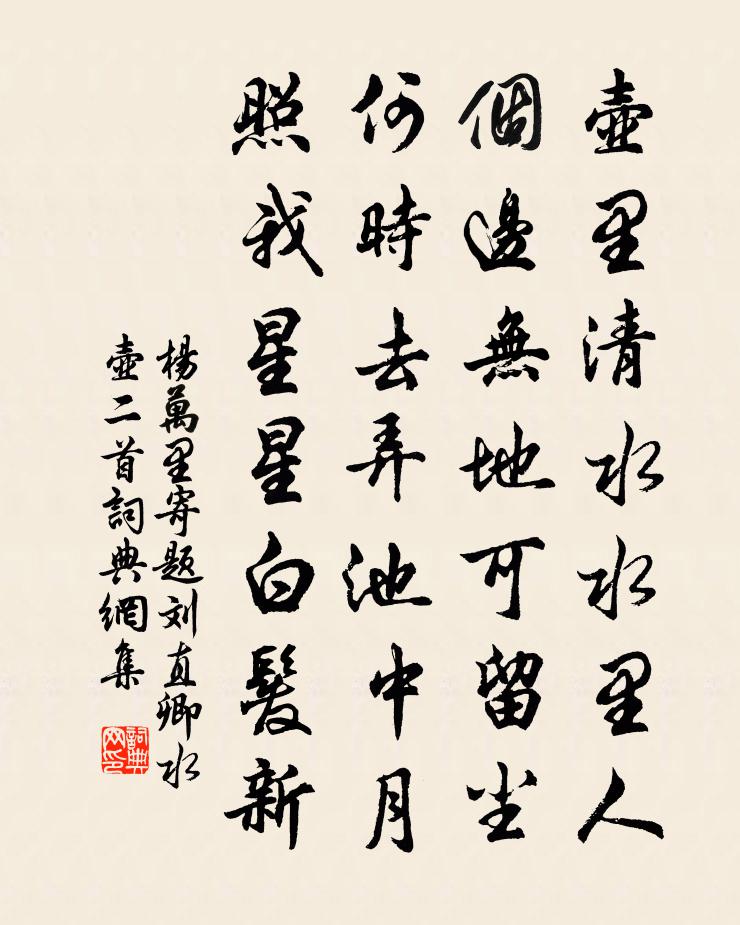 壺里清水水里人
個邊無地可留尘
何時去弄池中月
照我星星白髮新
楊萬里寄题刘直卿水
壺二首詞典網集
詞典
网印